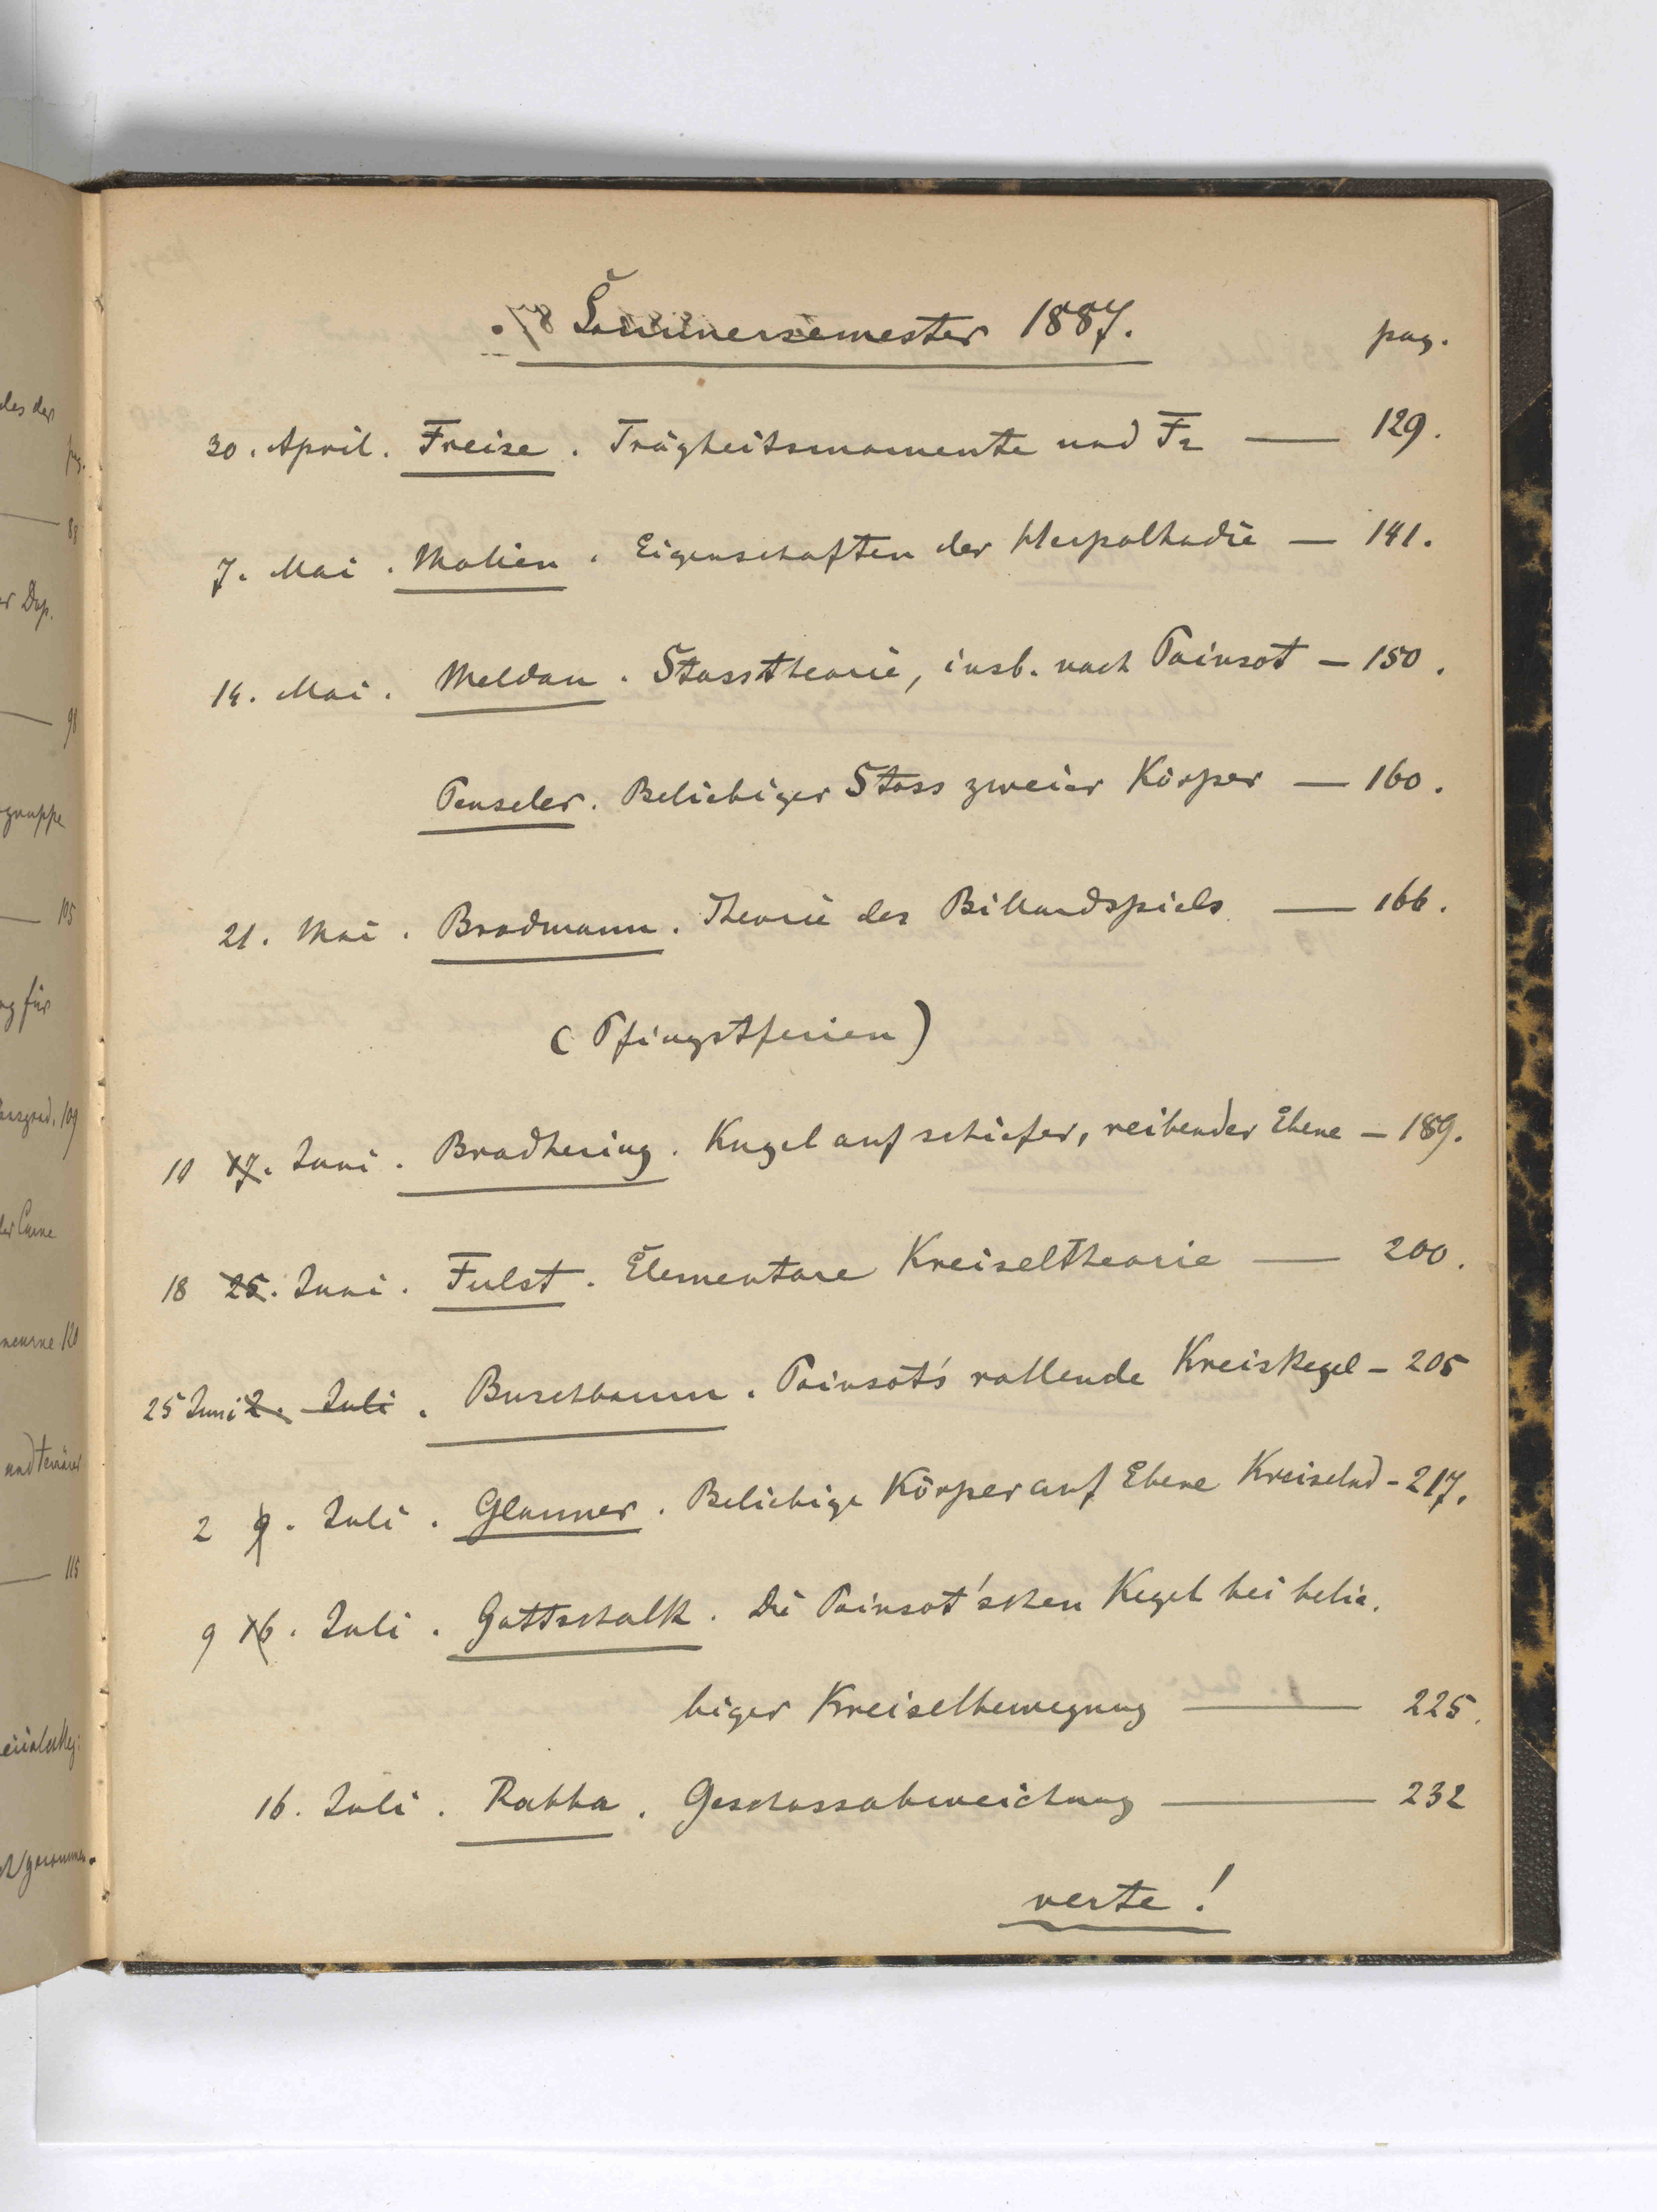 des der
pag.
88
er Dop.
98
gruppe
105
ng für
109
der Curve
120
und ternärer
115
Sommersemester 1887.
pag.
30. April. Freise. Trägheitsmomente und F2 — 129.
7. Mai. Molien. Eigenschaften der Herpolhodie — 141.
14. Mai. Meldau. Stosstheorie, insb. nach Poinsot — 150.
Penseler. Beliebiger Stoss zweier Körper — 160.
21. Mai. Brodmann. Theorie des Billardspiels — 166.
(Pfingstferien)
11 17. Juni. Bradhering. Kugel auf schiefer, reibender Ebene — 189.
18 25. Juni. Fulst. Elementare Kreiseltheorie — 200.
25 Juni 2. Juli. Buschbaum. Poinsot's rollende Kreiskegel — 205
2 9. Juli. Glauner. Beliebige Körper auf Ebene Kreiselnd — 217.
9 16. Juli. Gottschalk. Die Poinsot'schen Kegel bei belie-
biger Kreiselbewegung — 225.
16. Juli. Rabba. Geschossabweichung — 232
verte!